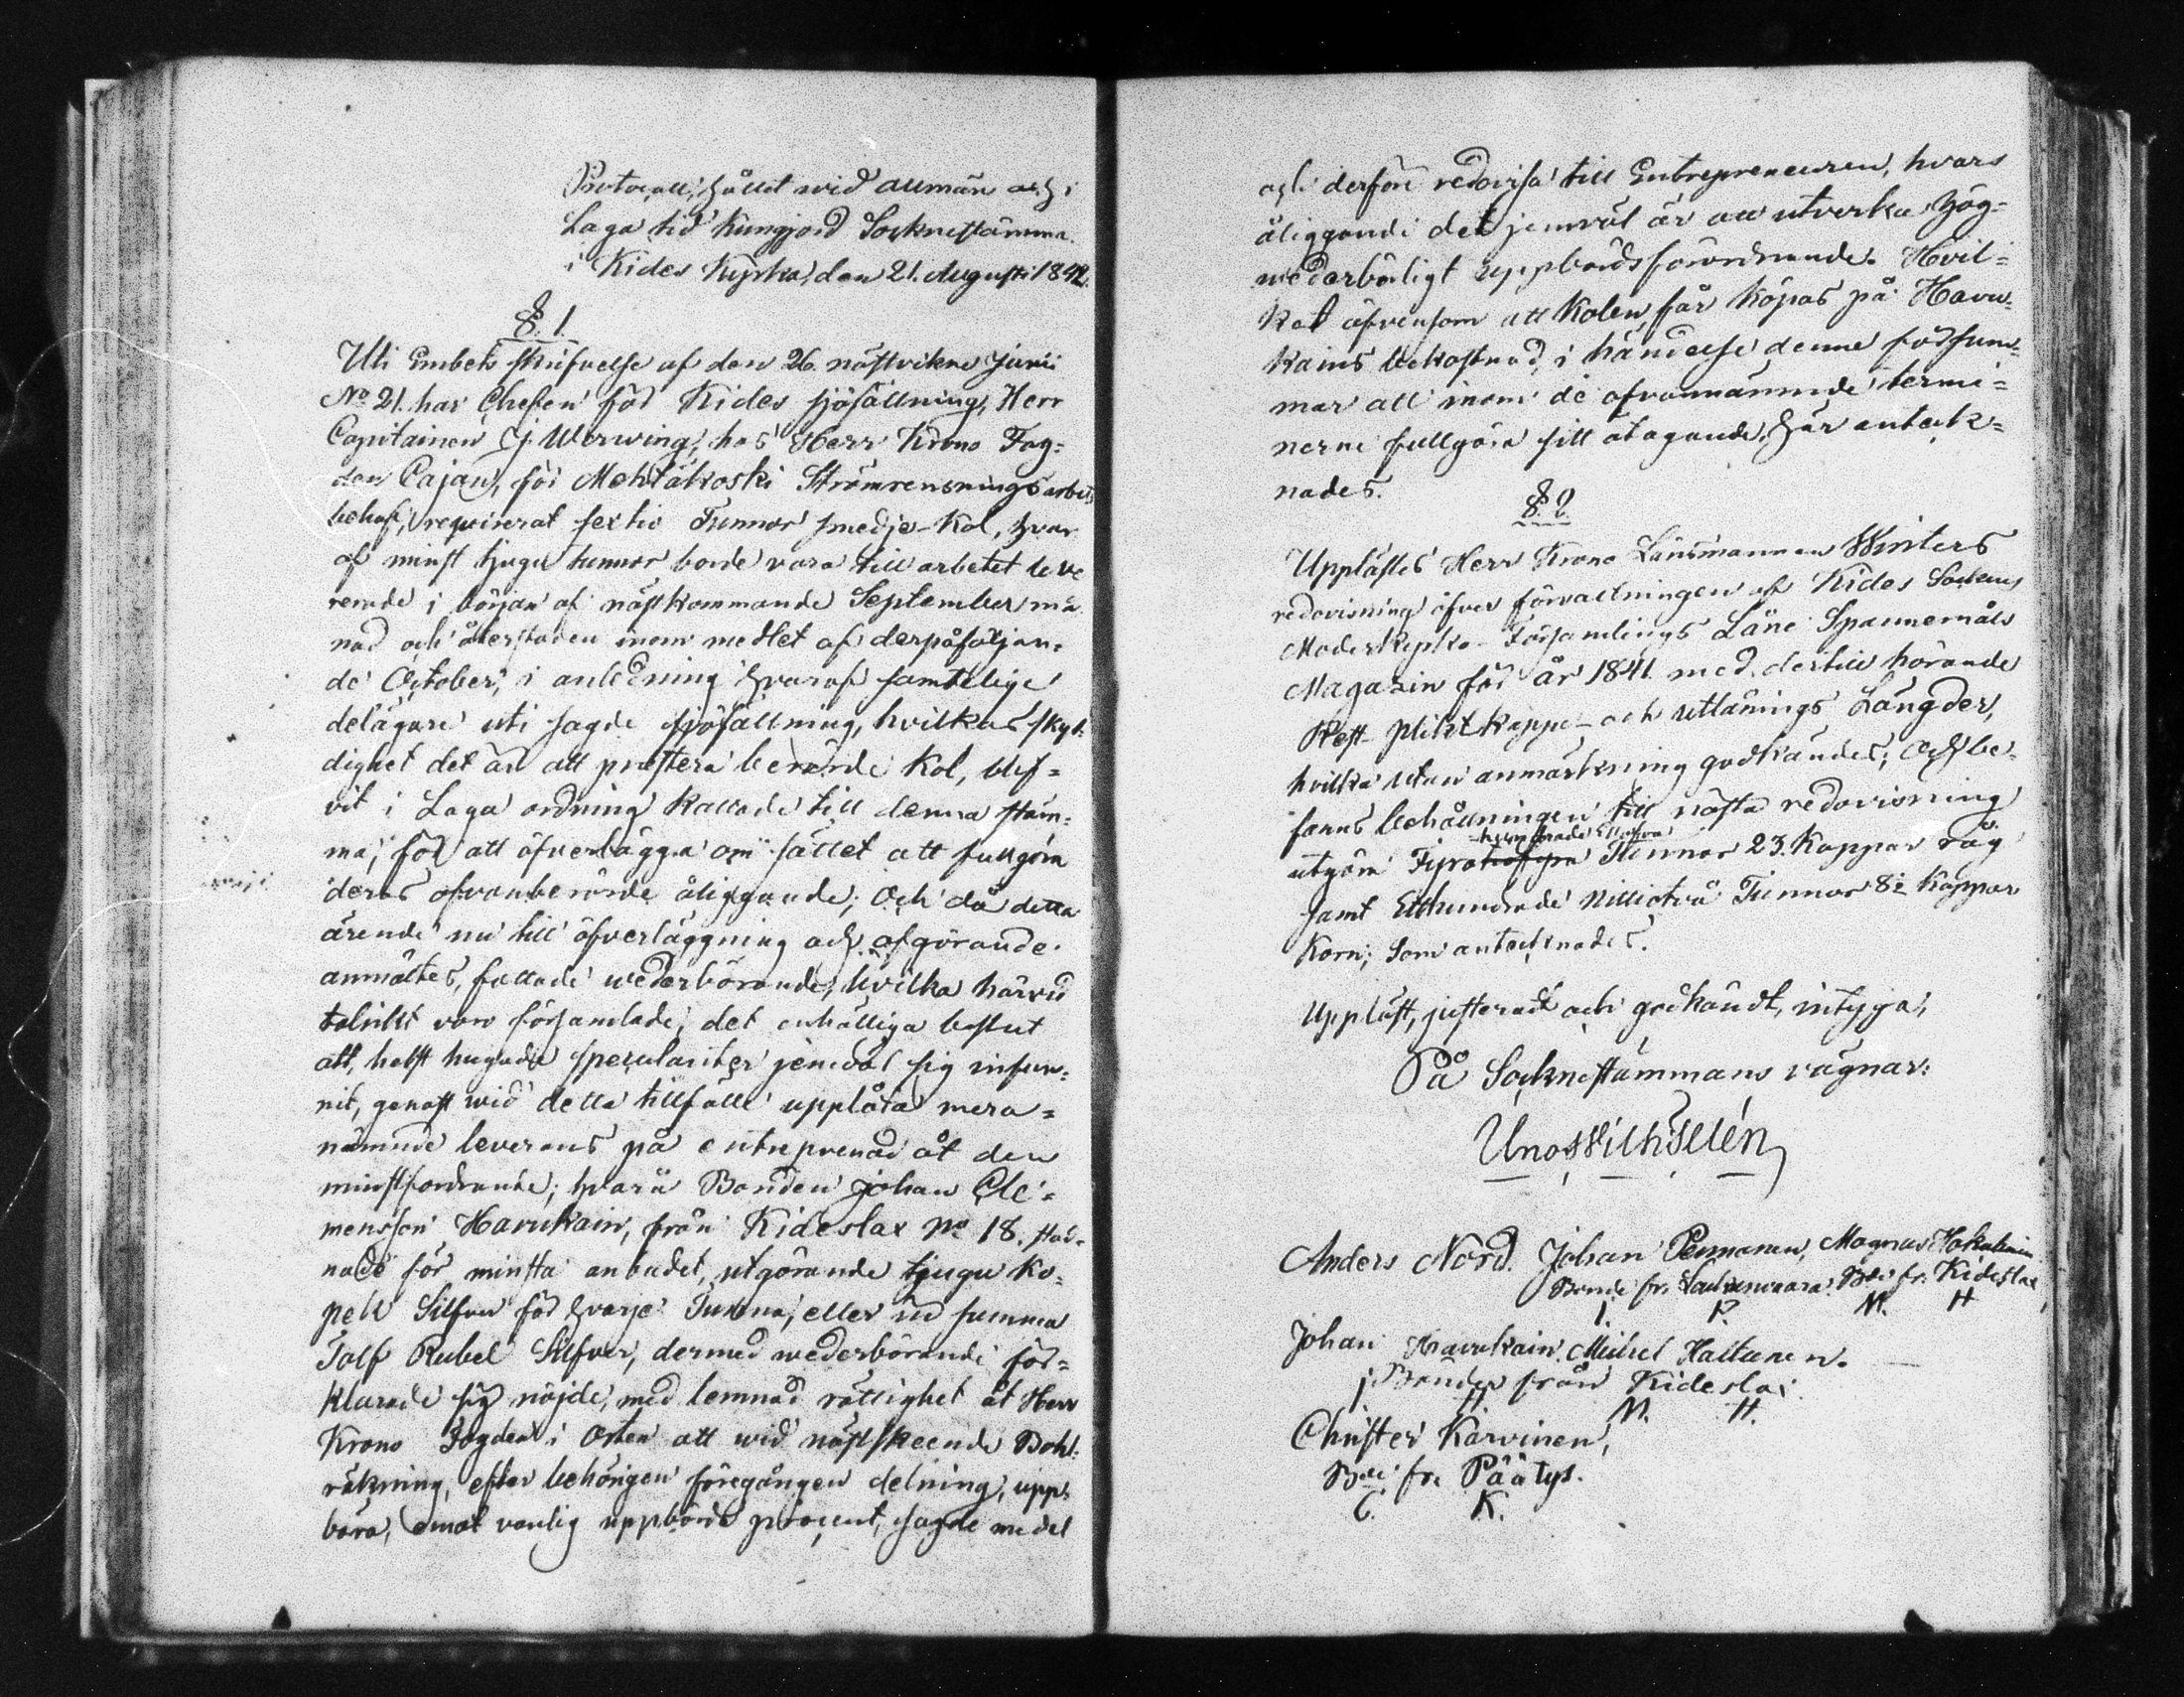 Protocoll, hållit wid allmän och i
Laga tid kungjord Socknestämma
i Kides Kyrka, den 21. Augusti 1842.
§. 1.
Uti Embets skrifvelse af den 26. nästvikne Junii
No 21. har Chefen för Kides sjöfällning, Herr
Capitainen J. Werving, hos Herr Krono Fog=
den Cajan, för Mehtäkoski Strömrensnings arbets
behof, requirerat sextio Tunnor smedje-Kol, hvar
af minst tjugu tunnor borde vara till arbetet leve
rerade i början af nästkommande September må
nad och återstoden inom medlet af derpåföljan=
de October, i anledning hvaraf samtelige
delägare uti sagde sjöfällning, hvilkas skyl=
dighet det är att prestera berörde Kol, blif=
vit i Laga ordning kallade till denna stäm=
ma, för att öfverlägga om sättet att fullgöra
deras ofvanberörde åliggande; Och då detta
ärende nu till öfverläggning och afgörande
anmältes, fattade wederbörande, hvilka härvid
talrikt voro församlade, det enhälliga beslut
att, helst hugade speculanter jemväl sig infun=
nit, genast wid detta tillfälle upplåta mera=
nämnde leverans på entreprenad åt den
minstfordrande; hvarå Bonden Johan Cle=
mensson Havukain, från Kideslax No 18. stad=
nade för minsta anbudet, utgörande tjugu Ko=
pek Silfver för hvarje Tunna, eller in summa
Tolf Rubel Silfver, dermed wederbörande för=
klarade sig nöjde, med lemnad rättighet åt Herr
Krono Fogden i Orten att wid nästskeende Bohl=
räkning, efter behörigen föregången delning, upp=
bära, emot vanlig uppbörds procent, sagde medel
och derföre redovisa till Entrepreneuren, hvars
åliggande det jemväl är att utverka hög=
wederbörligt uppbördsförordnande. Hvil=
ket äfvensom att Kolen får köpas på Havu=
kains bekostnad, i händelse denne försum=
mar att inom de ofvannämnde termi=
nerne fullgöra sitt åtagande, här anteck=
nades.
§. 2.
Upplästes Herr Krono Länsmannen Winters
redovisning öfver förvaltningen af Kides Sockens
Moderkyrko-Församlings Låne Spannemåls
Magazin för år 1841 med dertill hörande
Rest- plikt kappe- och utlånings Längder,
hvilka utan anmärkning godkändes; Och be=
fanns behållningen till nästa redovisning
utgöra Fyra Tunnor 23. Kappar råg
samt Etthundrade Nittiotvå Tunnor 8½ kappar
Korn; Som antecknades.
Uppläst, justeradt och godkändt, intyga,
På Socknestämmans vägnar:
Uno Wilh Telén
Anders Nord. Johan Pennanen, Magnus Hakulinin
Bonde fr. Bde fr. Kideslax
I. P. M. H
Johan Havukain. Michel Haltunen.
Bönder från Kideslax
J. H. M. H.
Christer Karvinen,
Bde fr. Päätys.
C. K.